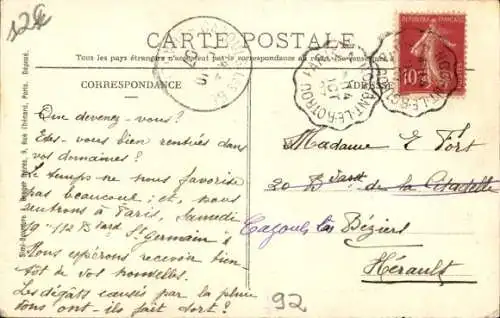 12€
CARTE POSTALE
Tous les pays étrangers n'acceptent pas la correspondance au recto.
CORRESPONDANCE
ADRESSE
REPUBLIQUE FRANÇAISE
10
NOGENT-LE-ROTROU
Que devenez-vous?
Etes-vous bien rentrés dans
vos domaines?
Le temps ne nous favorise
pas beaucoup; et, nous
rentrons à Paris, Samedi
19 - 112 Bd
St Germain
Nous espérons recevoir bien-
tôt de vos nouvelles.
Les dégâts causés par la pluie
ont-ils fait dort?
Madame E Fort
20 Bvard de la Citadelle
Cazouls les Béziers
Hérault
92